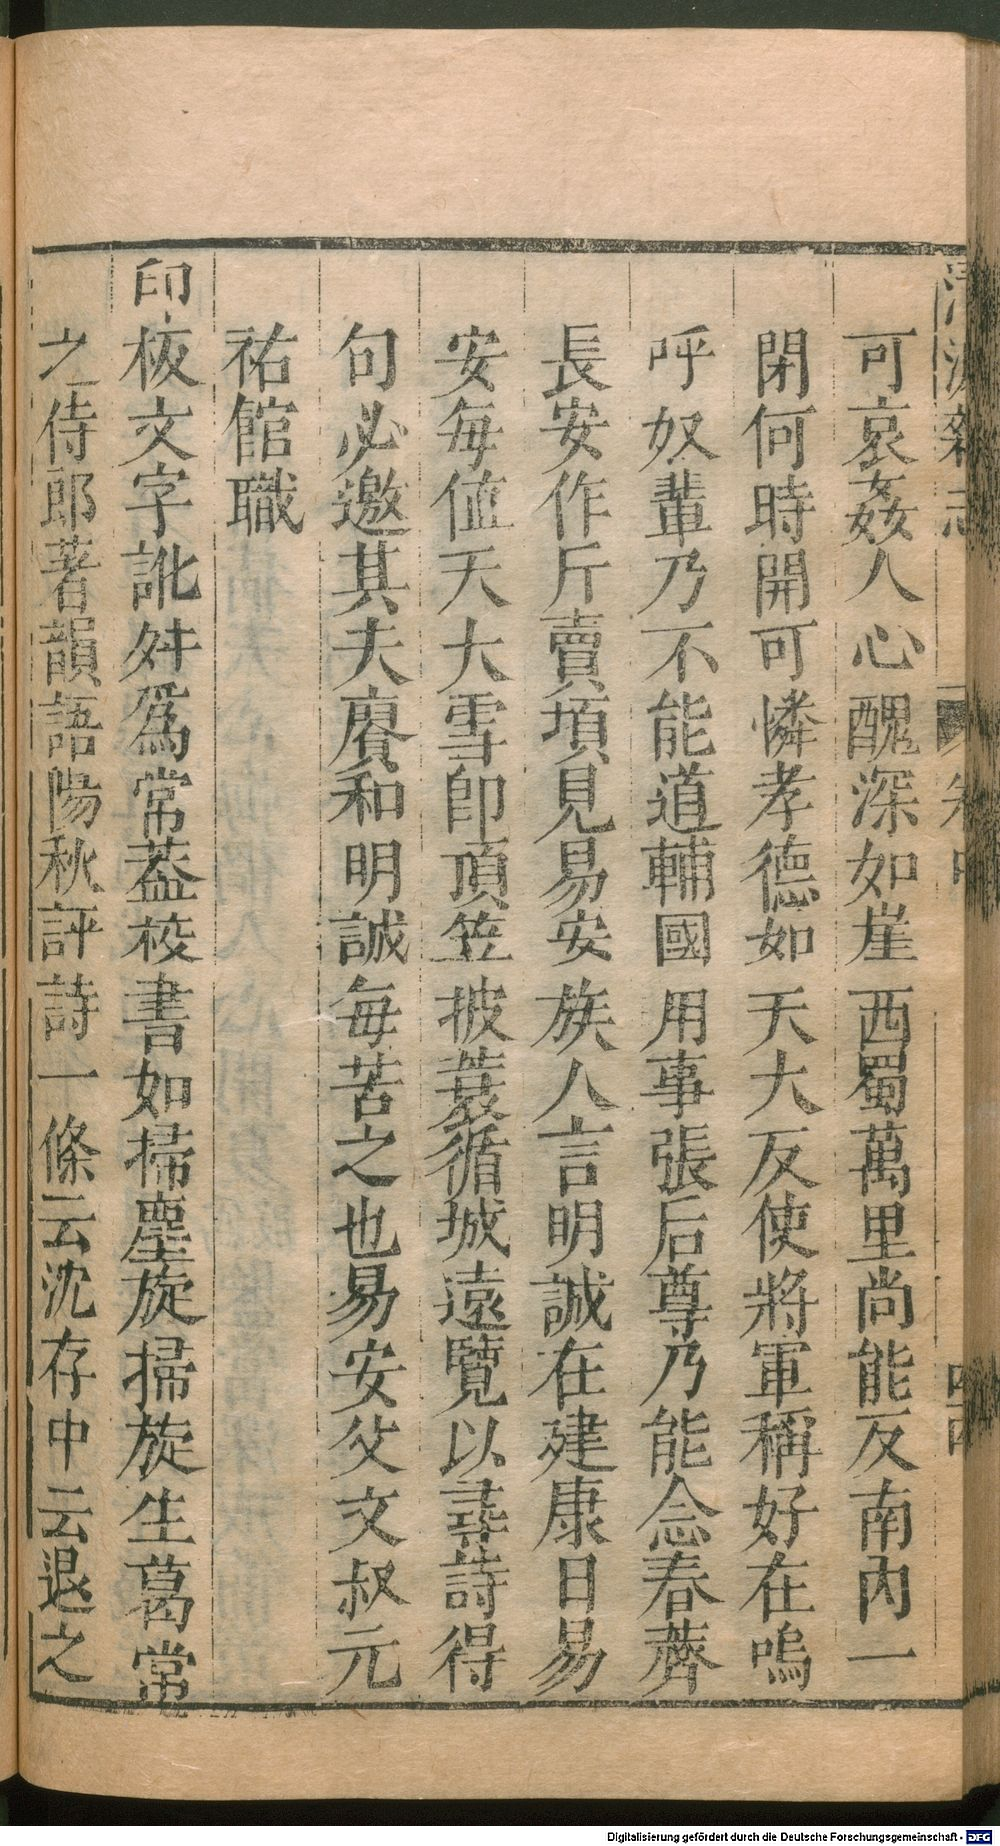 清波雜志
卷中
可哀姦人心醜深如崖西蜀萬里尚能反南內一
閉何時開可憐孝德如天大反使將軍稱好在嗚
呼奴輩乃不能道輔國用事張后尊乃能念春薺
長安作斤賣頃見易安族人言明誠在建康日易
安每値天大雪卽頂笠披蓑循城遠覽以尋詩得
句必邀其夫賡和明誠每苦之也易安父文叔元
祐館職
印板文字訛舛爲常葢校書如掃塵旋掃旋生葛常
之侍郎著韻語陽秋評詩一條云沈存中云退之
Digitalisierung gefördert durch die Deutsche Forschungsgemeinschaft - DFG